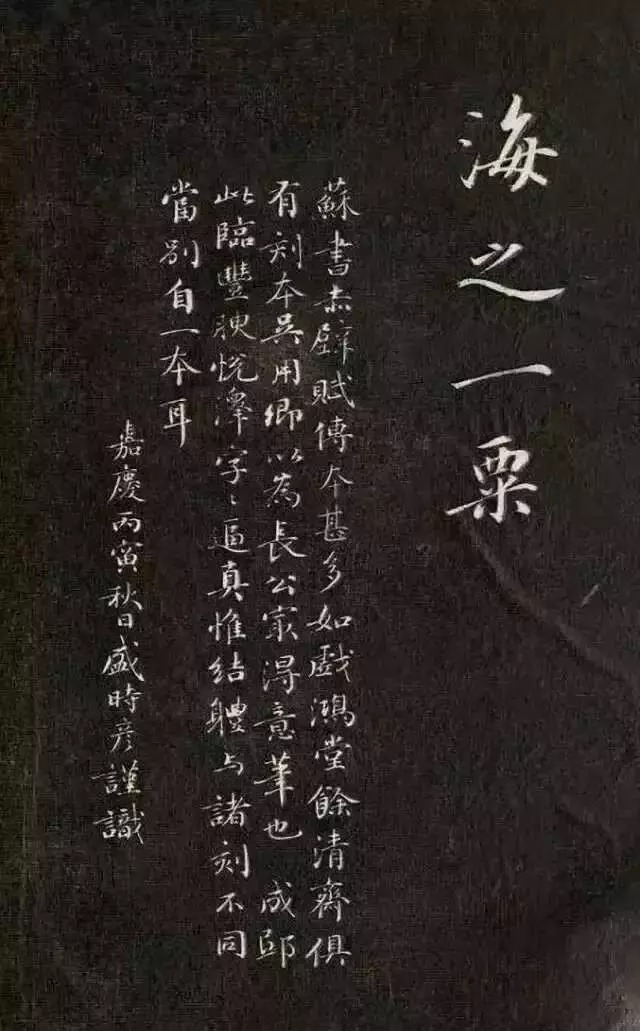 海之一粟
蘇書赤壁賦傳本甚多如戲鴻堂餘清齋俱
有刻本吳用卿以為長公最得意筆也成邸
此臨豐腴悅澤字〻逼真惟結體与諸刻不同
當別自一本耳
嘉慶丙寅秋日盛時彥謹識